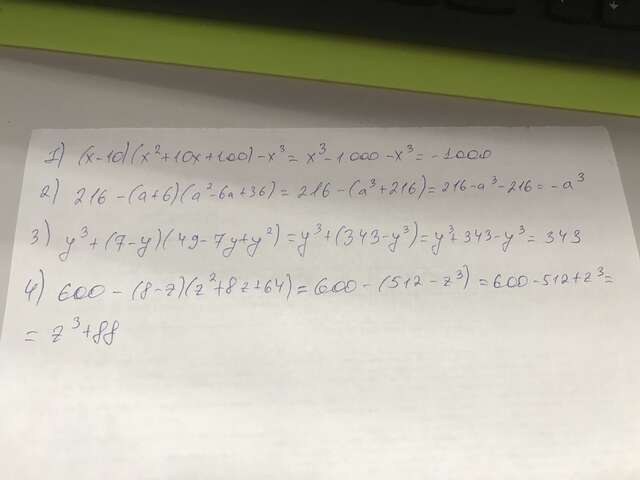 1) (x-10)(x²+10x+100)-x³=x³-1000-x³=-1000
2) 216-(a+6)(a²-6a+36)=216-(a³+216)=216-a³-216=-a³
3) y³+(7-y)(49-7y+y²)=y³+(343-y³)=y³+343-y³=343
4) 600-(8-z)(z²+8z+64)=600-(512-z³)=600-512+z³=
=z³+88